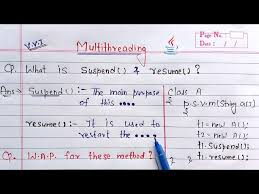 V.V.I
Multithreading
Page No.
Date : / /
Q. What is Suspend() & resume() ?
Ans→ Suspend() :- The main purpose
of this ••••
resume() :- It is used to
restart the ••••
Q. W.A.P. for these method?
Class A
{ p.s.v.m(String a[])
{
t1 = new A();
t2 = new A();
t1.Suspend();
t1.resume();
} }